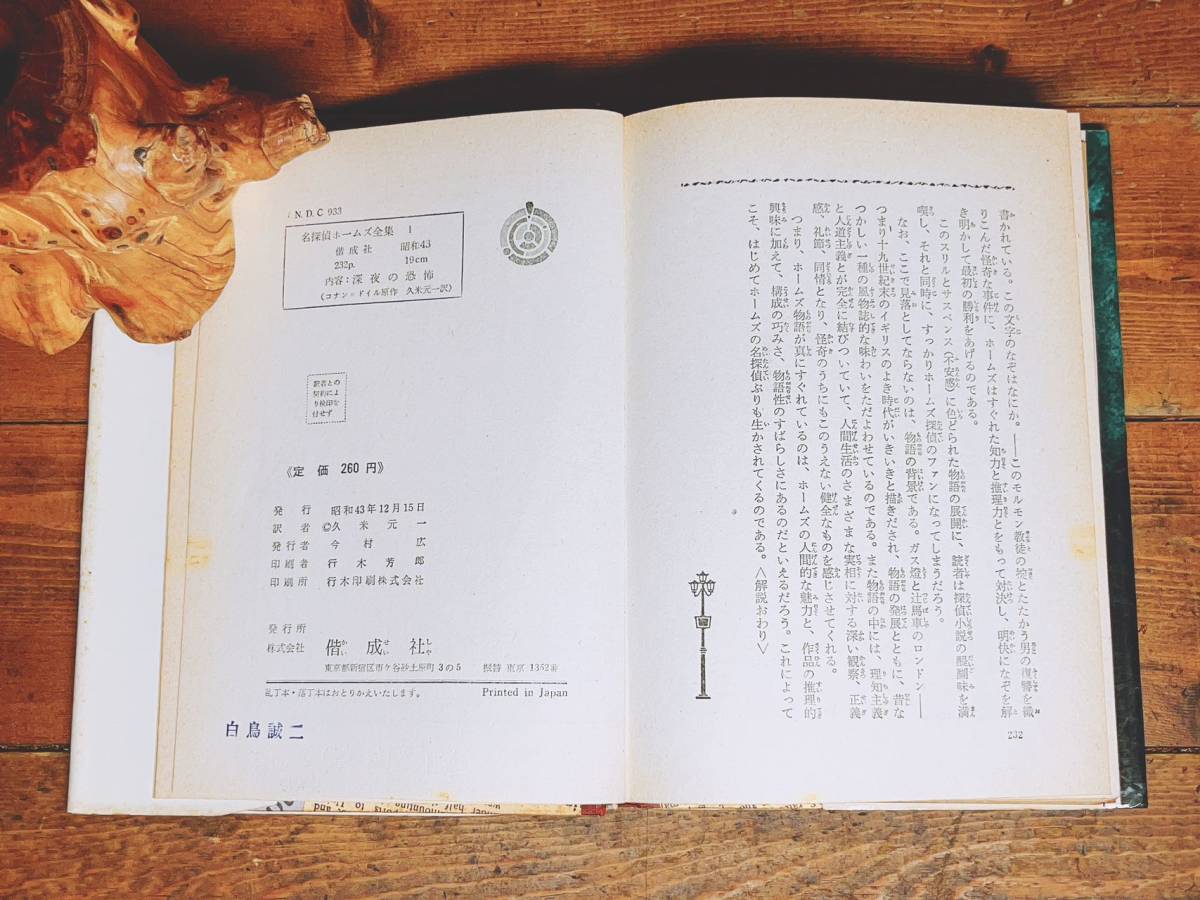 書かれている。この文字のなぞはなにか。――このモルモン教徒の掟とたたかう男の復讐を織
りこんだ怪奇な事件に、ホームズはすぐれた知力と推理力とをもって対決し、明快になぞを解
き明かして最初の勝利をあげるのである。
このスリルとサスペンス(不安感)に色どられた物語の展開に、読者は探偵小説の醍醐味を満
喫し、それと同時に、すっかりホームズ探偵のファンになってしまうだろう。
なお、ここで見落としてならないのは、物語の背景である。ガス燈と辻馬車のロンドン――
つまり十九世紀末のイギリスのよき時代がいきいきと描きだされ、物語の発展とともに、昔な
つかしい一種の風物誌的な味わいをただよわせているのである。また物語の中には、理知主義
と人道主義とが完全に結びついていて、人間生活のさまざまな実相に対する深い観察、正義
感、礼節、同情となり、怪奇のうちにもこのうえない健全なものを感じさせてくれる。
つまり、ホームズ物語が真にすぐれているのは、ホームズの人間的な魅力と、作品の推理的
興味に加えて、構成の巧みさ、物語性のすばらしさにあるのだといえるだろう。これによって
こそ、はじめてホームズの名探偵ぶりも生かされてくるのである。〈解説おわり〉
232
N.D.C 933
名探偵ホームズ全集 1
偕成社 昭和43
232p. 19cm
内容:深夜の恐怖
(コナン=ドイル原作 久米元一訳)
訳者との
契約によ
り検印を
付せず
《定価 260円》
発行 昭和43年12月15日
訳者 ©久米元一
発行者 今村広
印刷者 行木芳郎
印刷所 行木印刷株式会社
発行所
株式会社 偕成社
東京都新宿区市ケ谷砂土原町3の5 振替 東京 1352番
乱丁本・落丁本はおとりかえいたします。 Printed in Japan
白鳥誠二